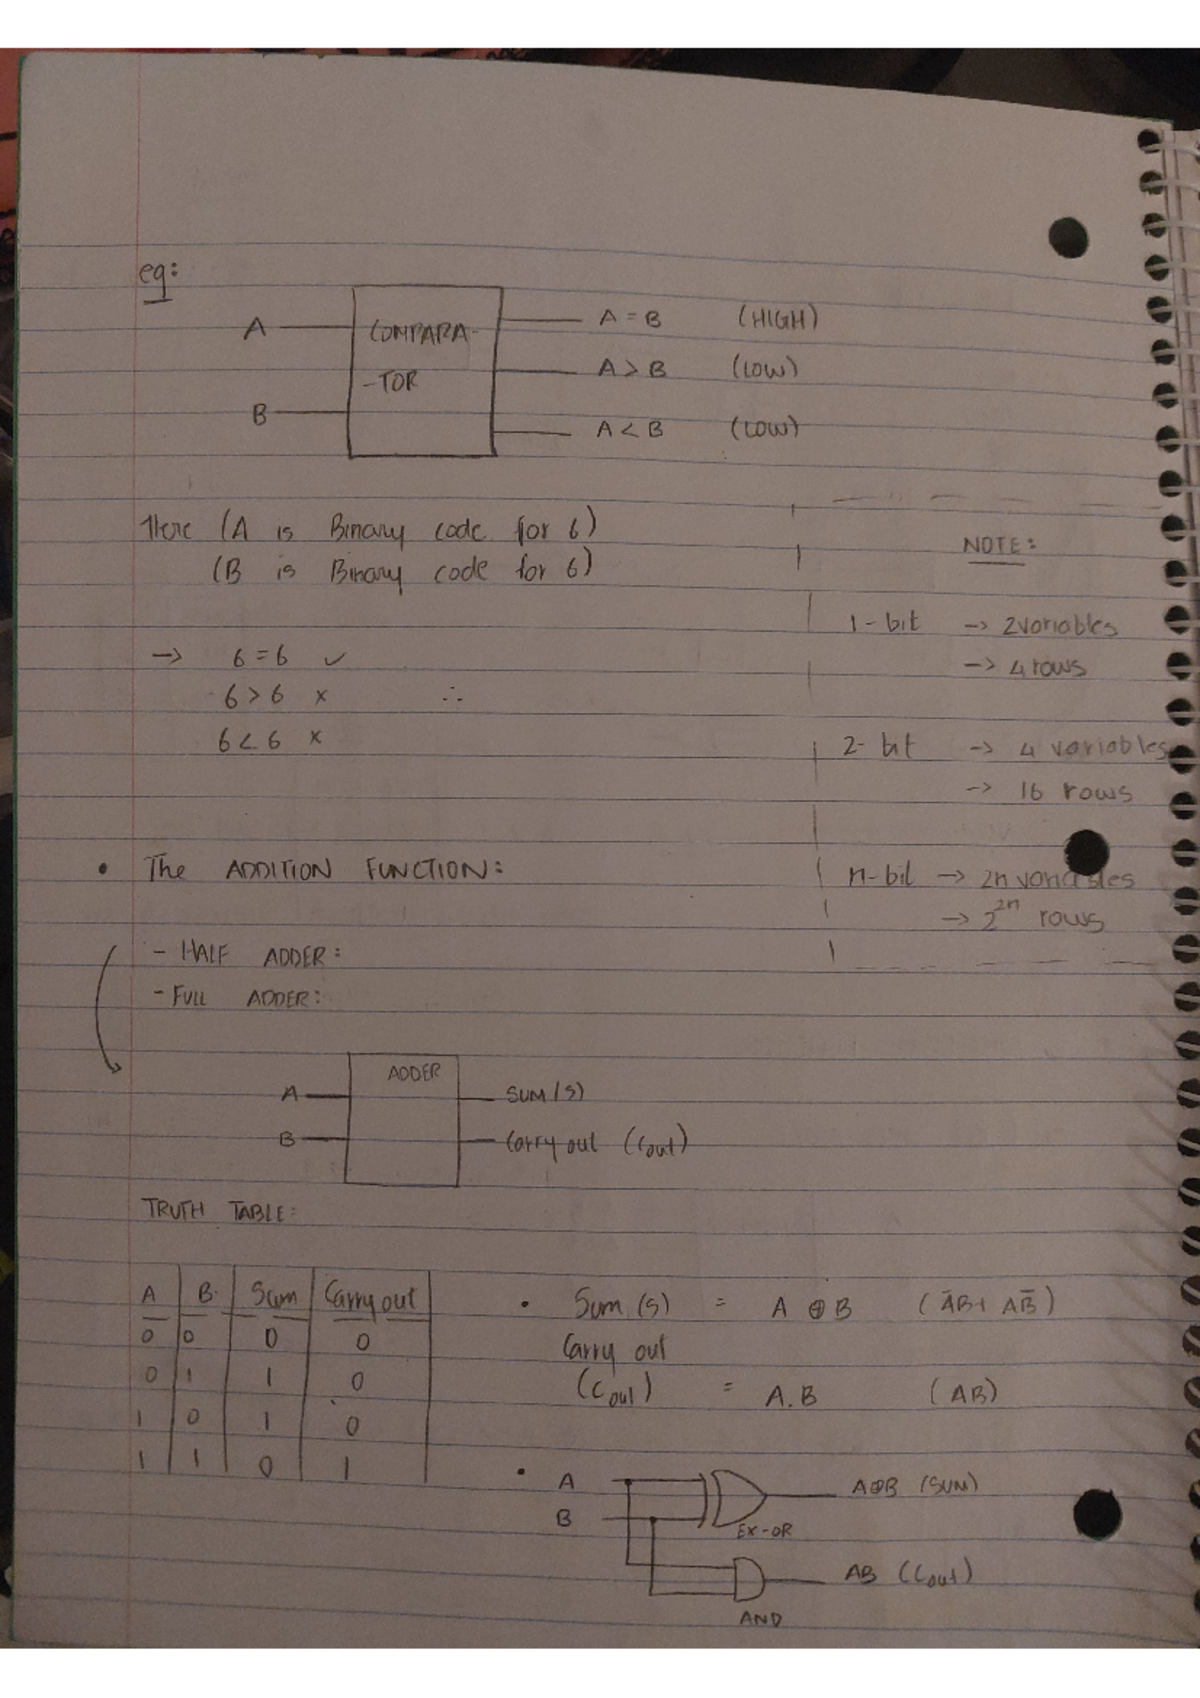 eg:
A COMPARA- A = B (HIGH)
-TOR A > B (LOW)
B A < B (LOW)
Here (A is Binary code for 6)
(B is Binary code for 6)
→ 6 = 6 ✓
6 > 6 x ∴
6 < 6 x
NOTE:
1-bit → 2 variables
→ 4 rows
2-bit → 4 variables
→ 16 rows
n-bit → 2n variables
→ 2^2n rows
• The ADDITION FUNCTION:
- HALF ADDER:
- FULL ADDER:
ADDER
A SUM (S)
B Carry out (Cout)
TRUTH TABLE:
A B Sum Carry out
0 0 0 0
0 1 1 0
1 0 1 0
1 1 0 1
• Sum (S) = A ⊕ B (A̅B + AB̅)
Carry out
(Cout) = A.B (AB)
• A A⊕B (SUM)
B EX-OR
AB (Cout)
AND